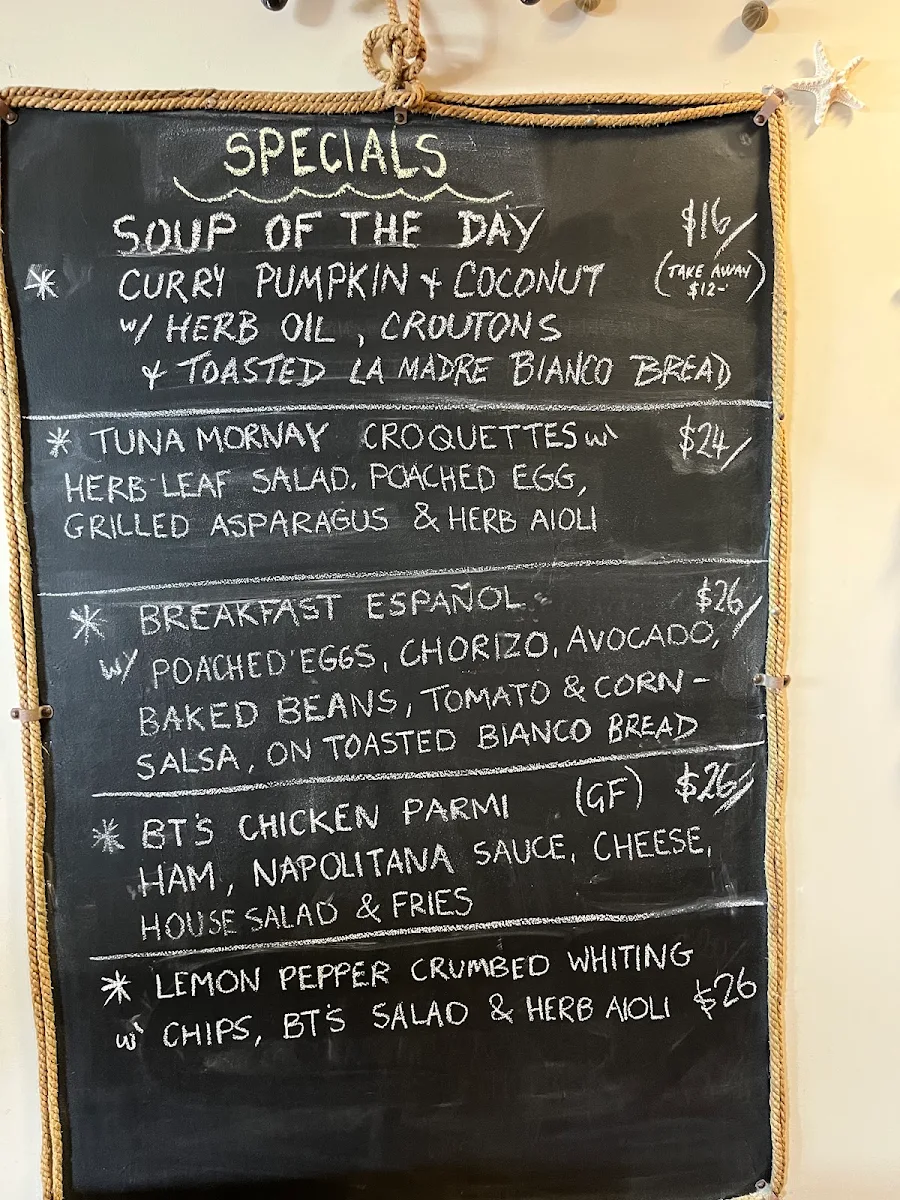 SPECIALS
SOUP OF THE DAY $16/
* CURRY PUMPKIN & COCONUT (TAKE AWAY $12-)
w/ HERB OIL, CROUTONS
& TOASTED LA MADRE BIANCO BREAD
* TUNA MORNAY CROQUETTES w/ $24/
HERB LEAF SALAD, POACHED EGG,
GRILLED ASPARAGUS & HERB AIOLI
* BREAKFAST ESPAÑOL $26/
w/ POACHED EGGS, CHORIZO, AVOCADO,
BAKED BEANS, TOMATO & CORN-
SALSA, ON TOASTED BIANCO BREAD
* BT'S CHICKEN PARMI (GF) $26/
HAM, NAPOLITANA SAUCE, CHEESE,
HOUSE SALAD & FRIES
* LEMON PEPPER CRUMBED WHITING
w/ CHIPS, BT'S SALAD & HERB AIOLI $26